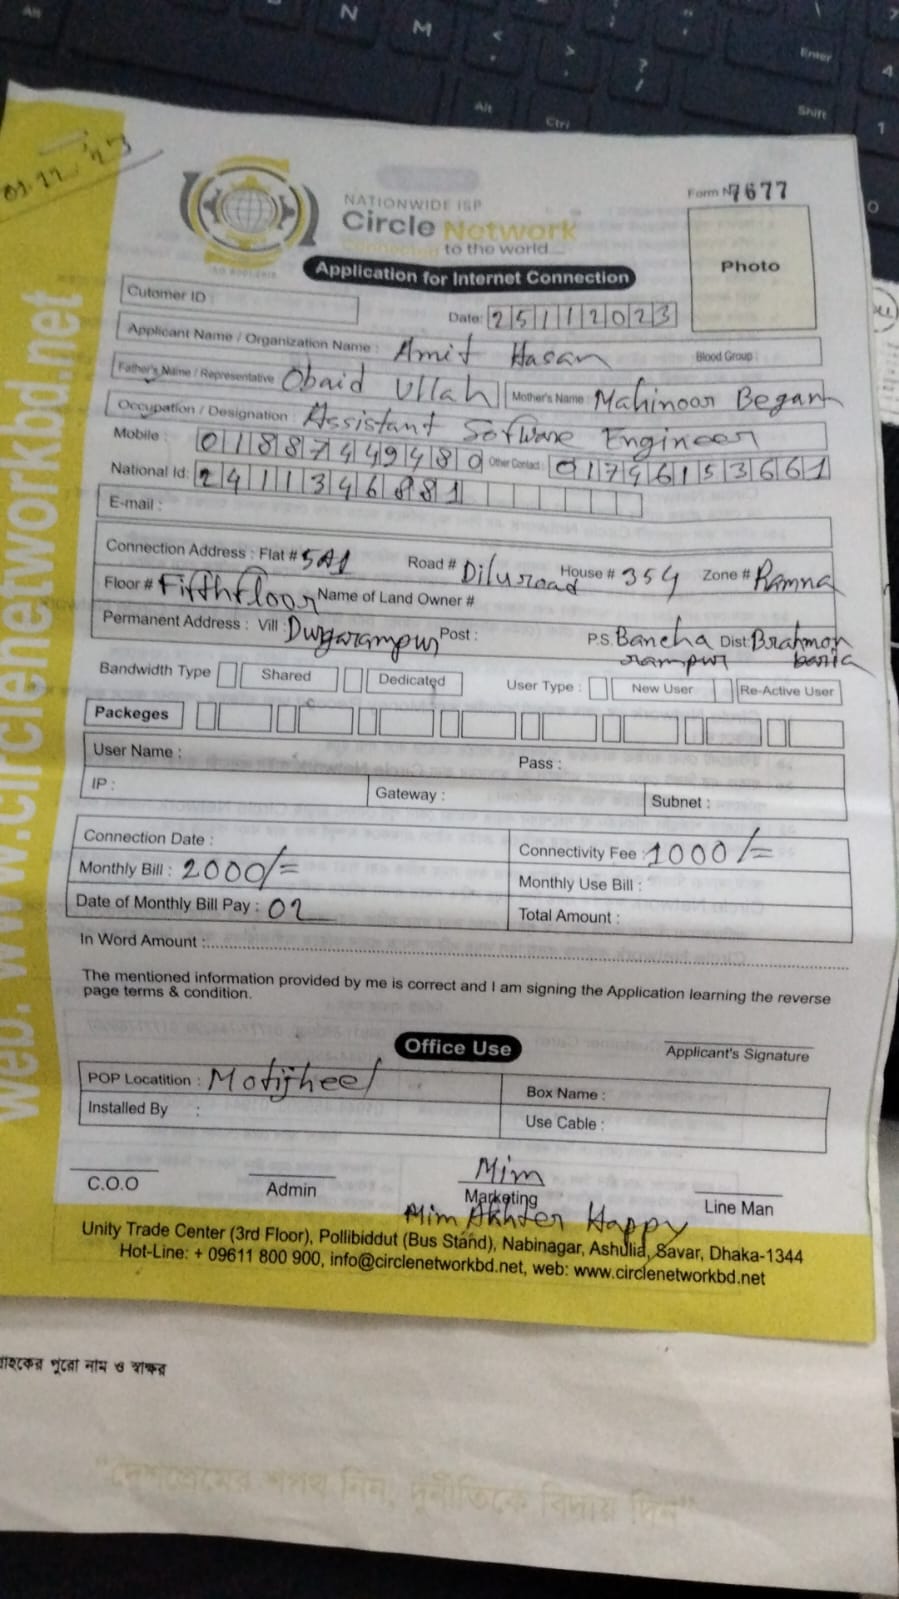 01.12.'23
NATIONWIDE ISP
Circle Network
Connected to the world...
Form N 7677
Photo
Application for Internet Connection
Cutomer ID :
Date: 25112023
Applicant Name / Organization Name : Amit Hasan Blood Group :
Father's Name / Representative Obaid Ullah Mother's Name Mahinoor Begam
Occupation / Designation : Assistant Software Engineer
Mobile : 01887449480 Other Contact : 01746153661
National Id: 2411346881
E-mail :
Connection Address : Flat # 5A1 Road # Diluroad House # 354 Zone # Ramna
Floor # Fifthfloor Name of Land Owner #
Permanent Address : Vill : Durgarampur Post : P.S. Bancha rampur Dist: Brahmon baria
Bandwidth Type Shared Dedicated User Type : New User Re-Active User
Packeges
User Name : Pass :
IP : Gateway : Subnet :
Connection Date :
Connectivity Fee : 1000/=
Monthly Bill : 2000/=
Monthly Use Bill :
Date of Monthly Bill Pay : 02
Total Amount :
In Word Amount :
The mentioned information provided by me is correct and I am signing the Application learning the reverse
page terms & condition.
Applicant's Signature
Office Use
POP Locatition : Motijheel
Box Name :
Installed By :
Use Cable :
C.O.O
Admin
Mim
Marketing
Mim Akhter Happy
Line Man
Unity Trade Center (3rd Floor), Pollibiddut (Bus Stand), Nabinagar, Ashulia, Savar, Dhaka-1344
Hot-Line: + 09611 800 900, info@circlenetworkbd.net, web: www.circlenetworkbd.net
web. www.circlenetworkbd.net
পুরো নাম ও স্বাক্ষর
"দেশপ্রেমের শপথ নিন, দুর্নীতিকে বিদায় দিন"
N
M
<
>
?
/
Enter
Alt
Ctrl
Shift
4
1
0